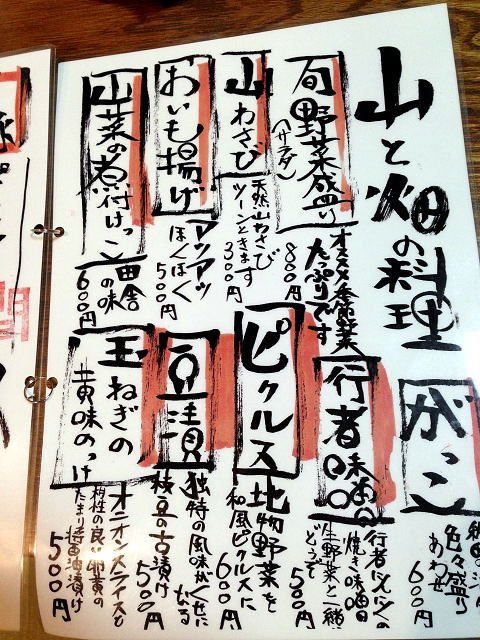 山と畑の料理
旬野菜盛り
(サラダ)
オススメ季節野菜
たっぷりです
800円
山わさび
天然山わさび
ツーンときます
300円
おいも揚げ
アツアツ
ほくほく
500円
山菜の煮付けっこ
田舎
の味
600円
がっこ
色々盛り
あわせ
600円
行者味噌
行者にんにくの
焼き味噌
生野菜と一緒に
どうぞ
500円
ピクルス
地物野菜を
和風ピクルスに
600円
豆漬
独特の風味がくせになる
枝豆の古漬け
500円
玉ねぎの
黄味のっけ
オニオンスライスと
相性の良い卵黄の
たまり醤油漬け
500円